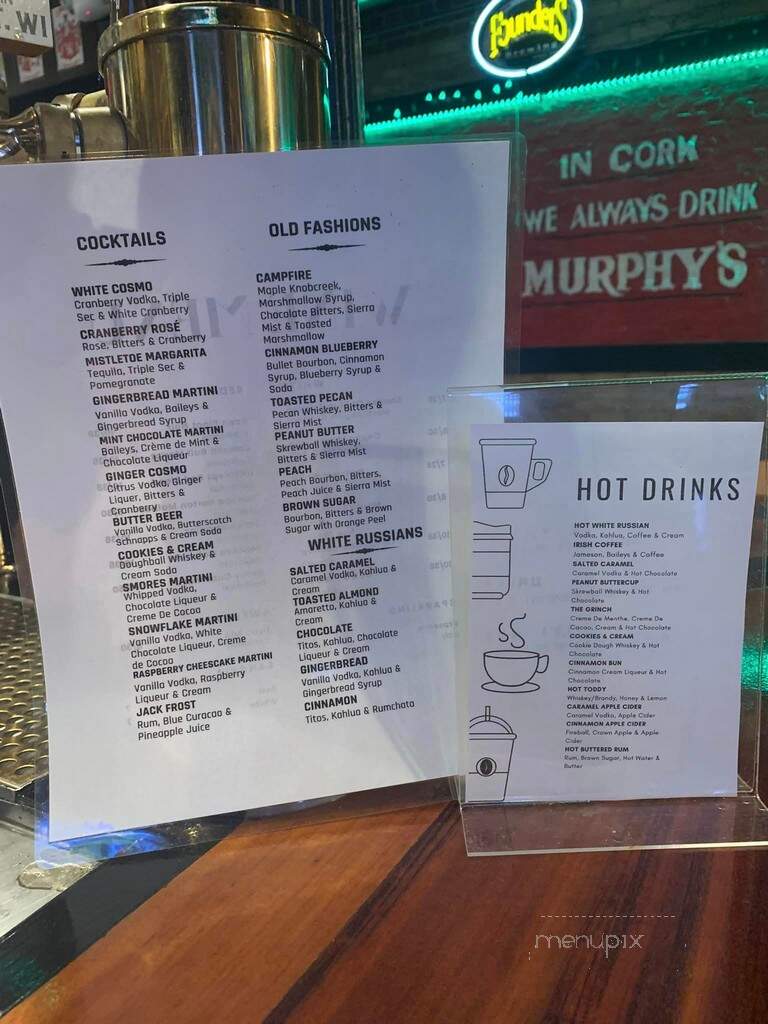 .WI
Founders
Brewing
IN CORK
WE ALWAYS DRINK
MURPHY'S
COCKTAILS
WHITE COSMO
Cranberry Vodka, Triple
Sec & White Cranberry
CRANBERRY ROSÉ
Rose, Bitters & Cranberry
MISTLETOE MARGARITA
Tequila, Triple Sec &
Pomegranate
GINGERBREAD MARTINI
Vanilla Vodka, Baileys &
Gingerbread Syrup
MINT CHOCOLATE MARTINI
Baileys, Crème de Mint &
Chocolate Liqueur
GINGER COSMO
Citrus Vodka, Ginger
Liquer, Bitters &
Cranberry
BUTTER BEER
Vanilla Vodka, Butterscotch
Schnapps & Cream Soda
COOKIES & CREAM
Doughball Whiskey &
Cream Soda
SMORES MARTINI
Whipped Vodka,
Chocolate Liqueur &
Creme De Cacao
SNOWFLAKE MARTINI
Vanilla Vodka, White
Chocolate Liqueur, Creme
de Cocoa
RASPBERRY CHEESCAKE MARTINI
Vanilla Vodka, Raspberry
Liqueur & Cream
JACK FROST
Rum, Blue Curacao &
Pineapple Juice
OLD FASHIONS
CAMPFIRE
Maple Knobcreek,
Marshmallow Syrup,
Chocolate Bitters, Sierra
Mist & Toasted
Marshmallow
CINNAMON BLUEBERRY
Bullet Bourbon, Cinnamon
Syrup, Blueberry Syrup &
Soda
TOASTED PECAN
Pecan Whiskey, Bitters &
Sierra Mist
PEANUT BUTTER
Skrewball Whiskey,
Bitters & Sierra Mist
PEACH
Peach Bourbon, Bitters,
Peach Juice & Sierra Mist
BROWN SUGAR
Bourbon, Bitters & Brown
Sugar with Orange Peel
WHITE RUSSIANS
SALTED CARAMEL
Caramel Vodka, Kahlua &
Cream
TOASTED ALMOND
Amaretto, Kahlua &
Cream
CHOCOLATE
Titos, Kahlua, Chocolate
Liqueur & Cream
GINGERBREAD
Vanilla Vodka, Kahlua &
Gingerbread Syrup
CINNAMON
Titos, Kahlua & Rumchata
HOT DRINKS
HOT WHITE RUSSIAN
Vodka, Kahlua, Coffee & Cream
IRISH COFFEE
Jameson, Baileys & Coffee
SALTED CARAMEL
Caramel Vodka & Hot Chocolate
PEANUT BUTTERCUP
Skrewball Whiskey & Hot
Chocolate
THE GRINCH
Creme De Menthe, Creme De
Cacao, Cream & Hot Chocolate
COOKIES & CREAM
Cookie Dough Whiskey & Hot
Chocolate
CINNAMON BUN
Cinnamon Cream Liqueur & Hot
Chocolate
HOT TODDY
Whiskey/Brandy, Honey & Lemon
CARAMEL APPLE CIDER
Caramel Vodka, Apple Cider
CINNAMON APPLE CIDER
Fireball, Crown Apple & Apple
Cider
HOT BUTTERED RUM
Rum, Brown Sugar, Hot Water &
Butter
menupix